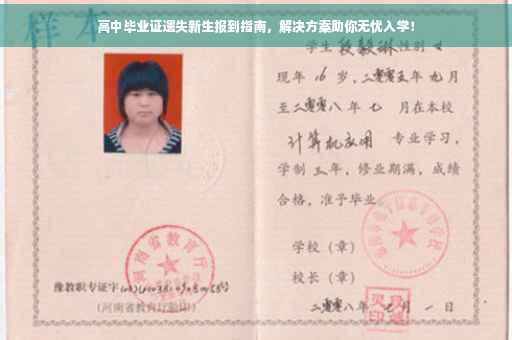 高中毕业证遗失新生报到指南，解决方案助你无忧入学！
样本
学生 段毅琳 性别 女
现年 16 岁，二零零五年 九月
至二零零八年 七 月在本校
计算机应用 专业学习，
学制 三 年，修业期满，成绩
合格，准予毕业
学校（章）
校长（章）
二零零八年 七月 一 日
河南省教育厅
豫教职专证字
（河南省教育厅验印）